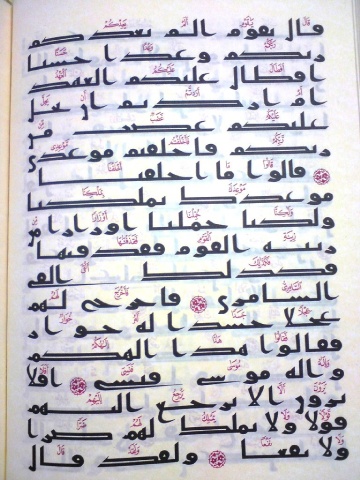 قال يقوم الم يعدكم
ربكم وعدا حسنا
افطال عليكم العهد
ام اردتم ان يحل
عليكم غضب من
ربكم فاخلفتم موعدي
۝ قالوا ما اخلفنا
موعدك بملكنا
ولكنا حملنا اوزارا من
زينة القوم فقذفنها
فكذلك القى
السامري ۝ فاخرج لهم
عجلا جسدا له خوار
فقالوا هذا الهكم
واله موسى فنسي ۝ افلا
يرون الا يرجع اليهم
قولا ولا يملك لهم ضرا
ولا نفعا ۝ ولقد قال